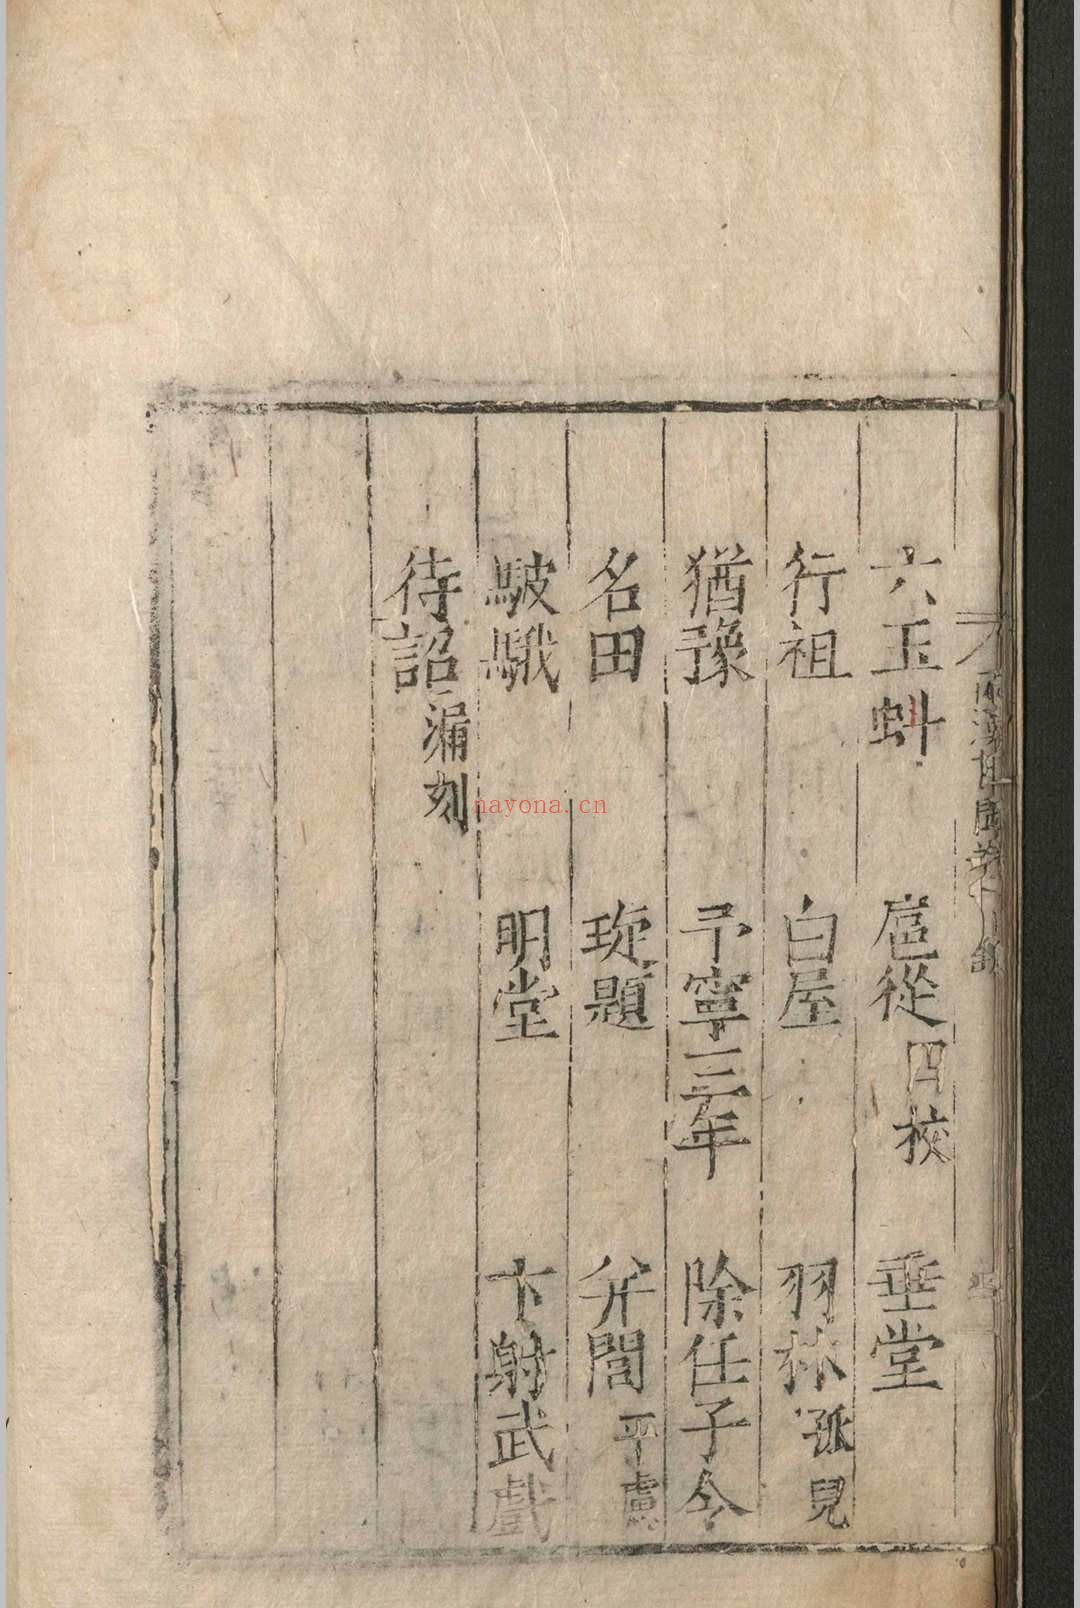 六玉蚪 扈從四校 垂堂
行祖 白屋 羽林孤兒
猶豫 予寧三年 除任子令
名田 琁題 弁間平慮
駊騀 明堂 卞射武戲
待詔漏刻
nayona.cn